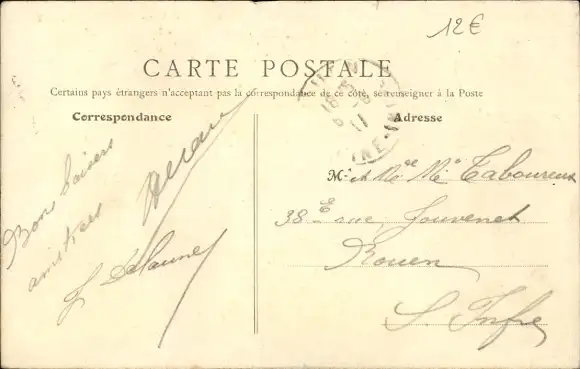 12€
CARTE POSTALE
Certains pays étrangers n'acceptant pas la correspondance de ce côté, se renseigner à la Poste
Correspondance
Adresse
Bons baisers
amitiées
J Delaunay
M. et Mde Me Taboureux
38 E rue Jouvenet
Rouen
S. Infre